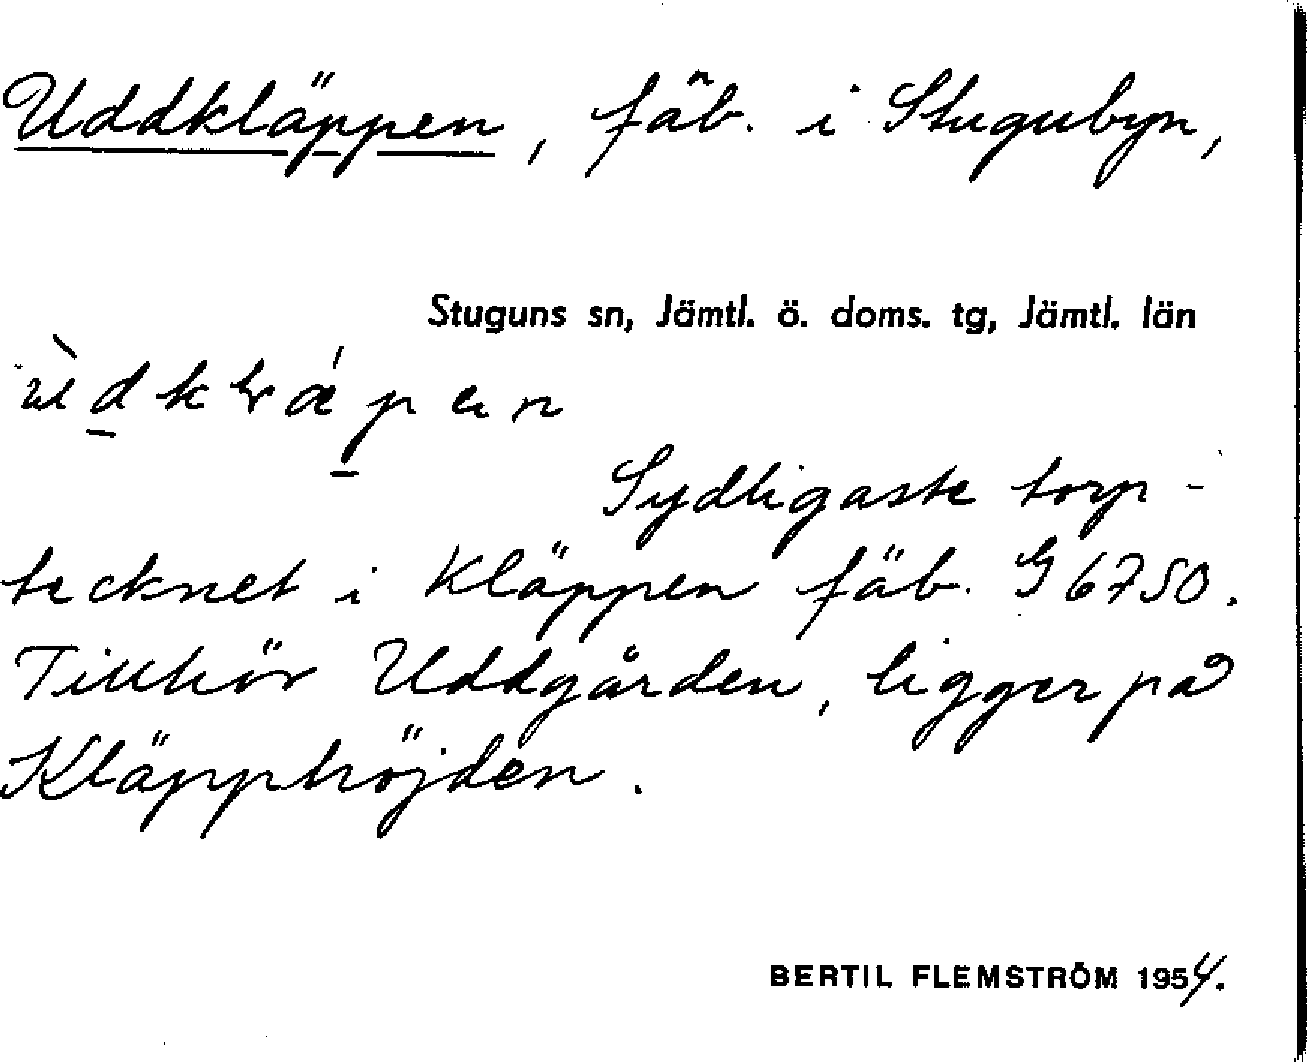 Uddkläppen, fäb. i Stugubyn,
Stuguns sn, Jämtl. ö. doms. tg, Jämtl. län
Sydligaste torp-
tecknet i Kläppen fäb. G 6750.
Tillhör Uddgården, ligger på
Kläpphöjden.
BERTIL FLEMSTRÖM 1954.